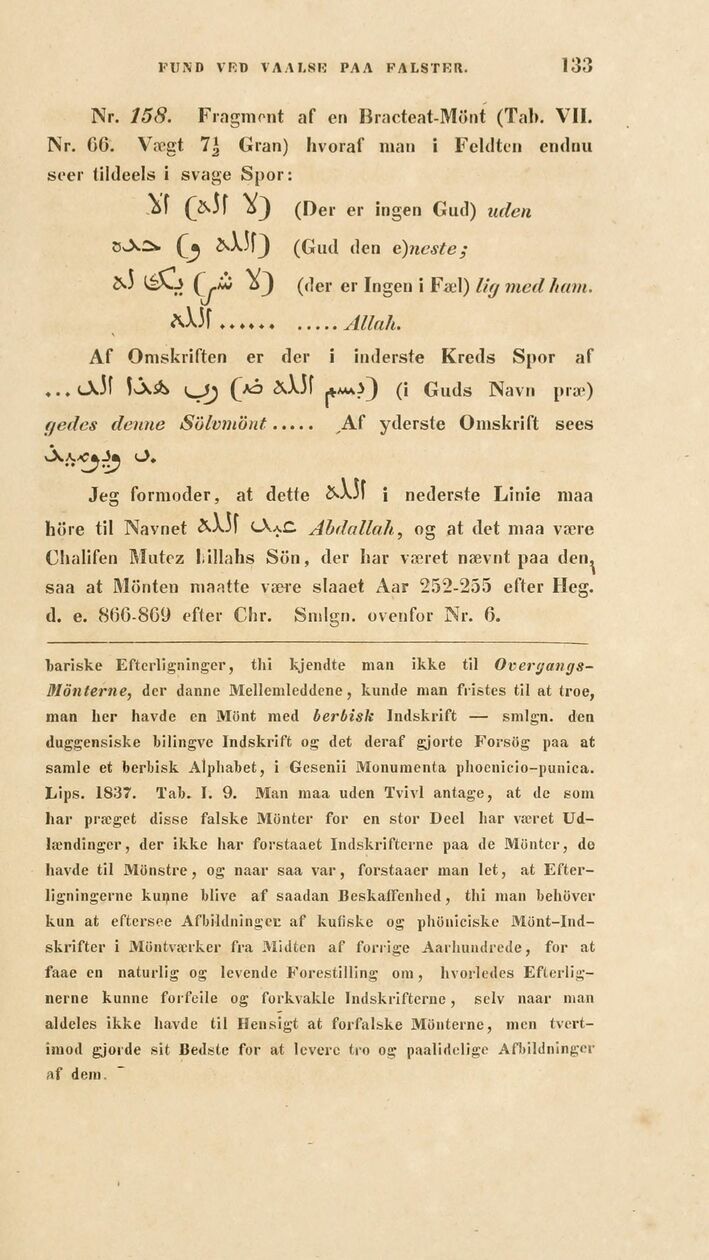 FUND VED VAALSE PAA FALSTER. 133
Nr. 158. Fragment af en Bracteat-Mönt (Tab. VII.
Nr. 66. Vægt 7½ Gran) hvoraf man i Feldten endnu
seer tildeels i svage Spor:
لا ا (لاله ا) (Der er ingen Gud) uden
(الله و) حده (Gud den e)neste;
(لا شر) يك له (der er Ingen i Fæl) lig med ham.
...... الله ..... Allah.
Af Omskriften er der i inderste Kreds Spor af
(بسم الله ضر) ب هذا الد... (i Guds Navn præ)
gedes denne Sölvmönt..... Af yderste Omskrift sees
Jeg formoder, at dette الله i nederste Linie maa
höre til Navnet عبد الله Abdallah, og at det maa være
Chalifen Mutez Lillahs Sön, der har været nævnt paa den,
saa at Mönten maatte være slaaet Aar 252-255 efter Heg.
d. e. 866-869 efter Chr. Smlgn. ovenfor Nr. 6.
bariske Efterligninger, thi kjendte man ikke til Overgangs-
Mönterne, der danne Mellemleddene, kunde man fristes til at troe,
man her havde en Mönt med berbisk Indskrift — smlgn. den
duggensiske bilingve Indskrift og det deraf gjorte Forsög paa at
samle et berbisk Alphabet, i Gesenii Monumenta phoenicio-punica.
Lips. 1837. Tab. I. 9. Man maa uden Tvivl antage, at de som
har præget disse falske Mönter for en stor Deel har været Ud-
lændinger, der ikke har forstaaet Indskrifterne paa de Mönter, de
havde til Mönstre, og naar saa var, forstaaer man let, at Efter-
ligningerne kunne blive af saadan Beskaffenhed, thi man behöver
kun at eftersee Afbildninger af kufiske og phöniciske Mönt-Ind-
skrifter i Möntværker fra Midten af forrige Aarhundrede, for at
faae en naturlig og levende Forestilling om, hvorledes Efterlig-
nerne kunne forfeile og forkvakle Indskrifterne, selv naar man
aldeles ikke havde til Hensigt at forfalske Mönterne, men tvert-
imod gjorde sit Bedste for at levere tro og paalidelige Afbildninger
af dem.